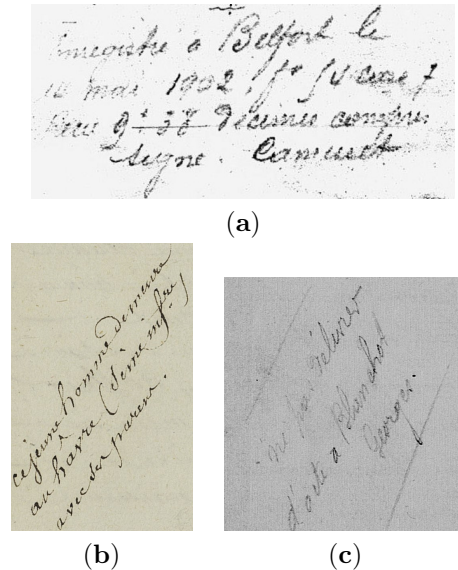 Enregistré à Belfort le
14 mai 1902 f° 54 case 7
Recu 9f 38 Décimes compris
Signé. Camuset
(a)
ce jeune homme demeure
au havre (Seine infre)
avec ses parens.
(b)
ne pas délivrer
d'acte à Blanchot
Georges
(c)